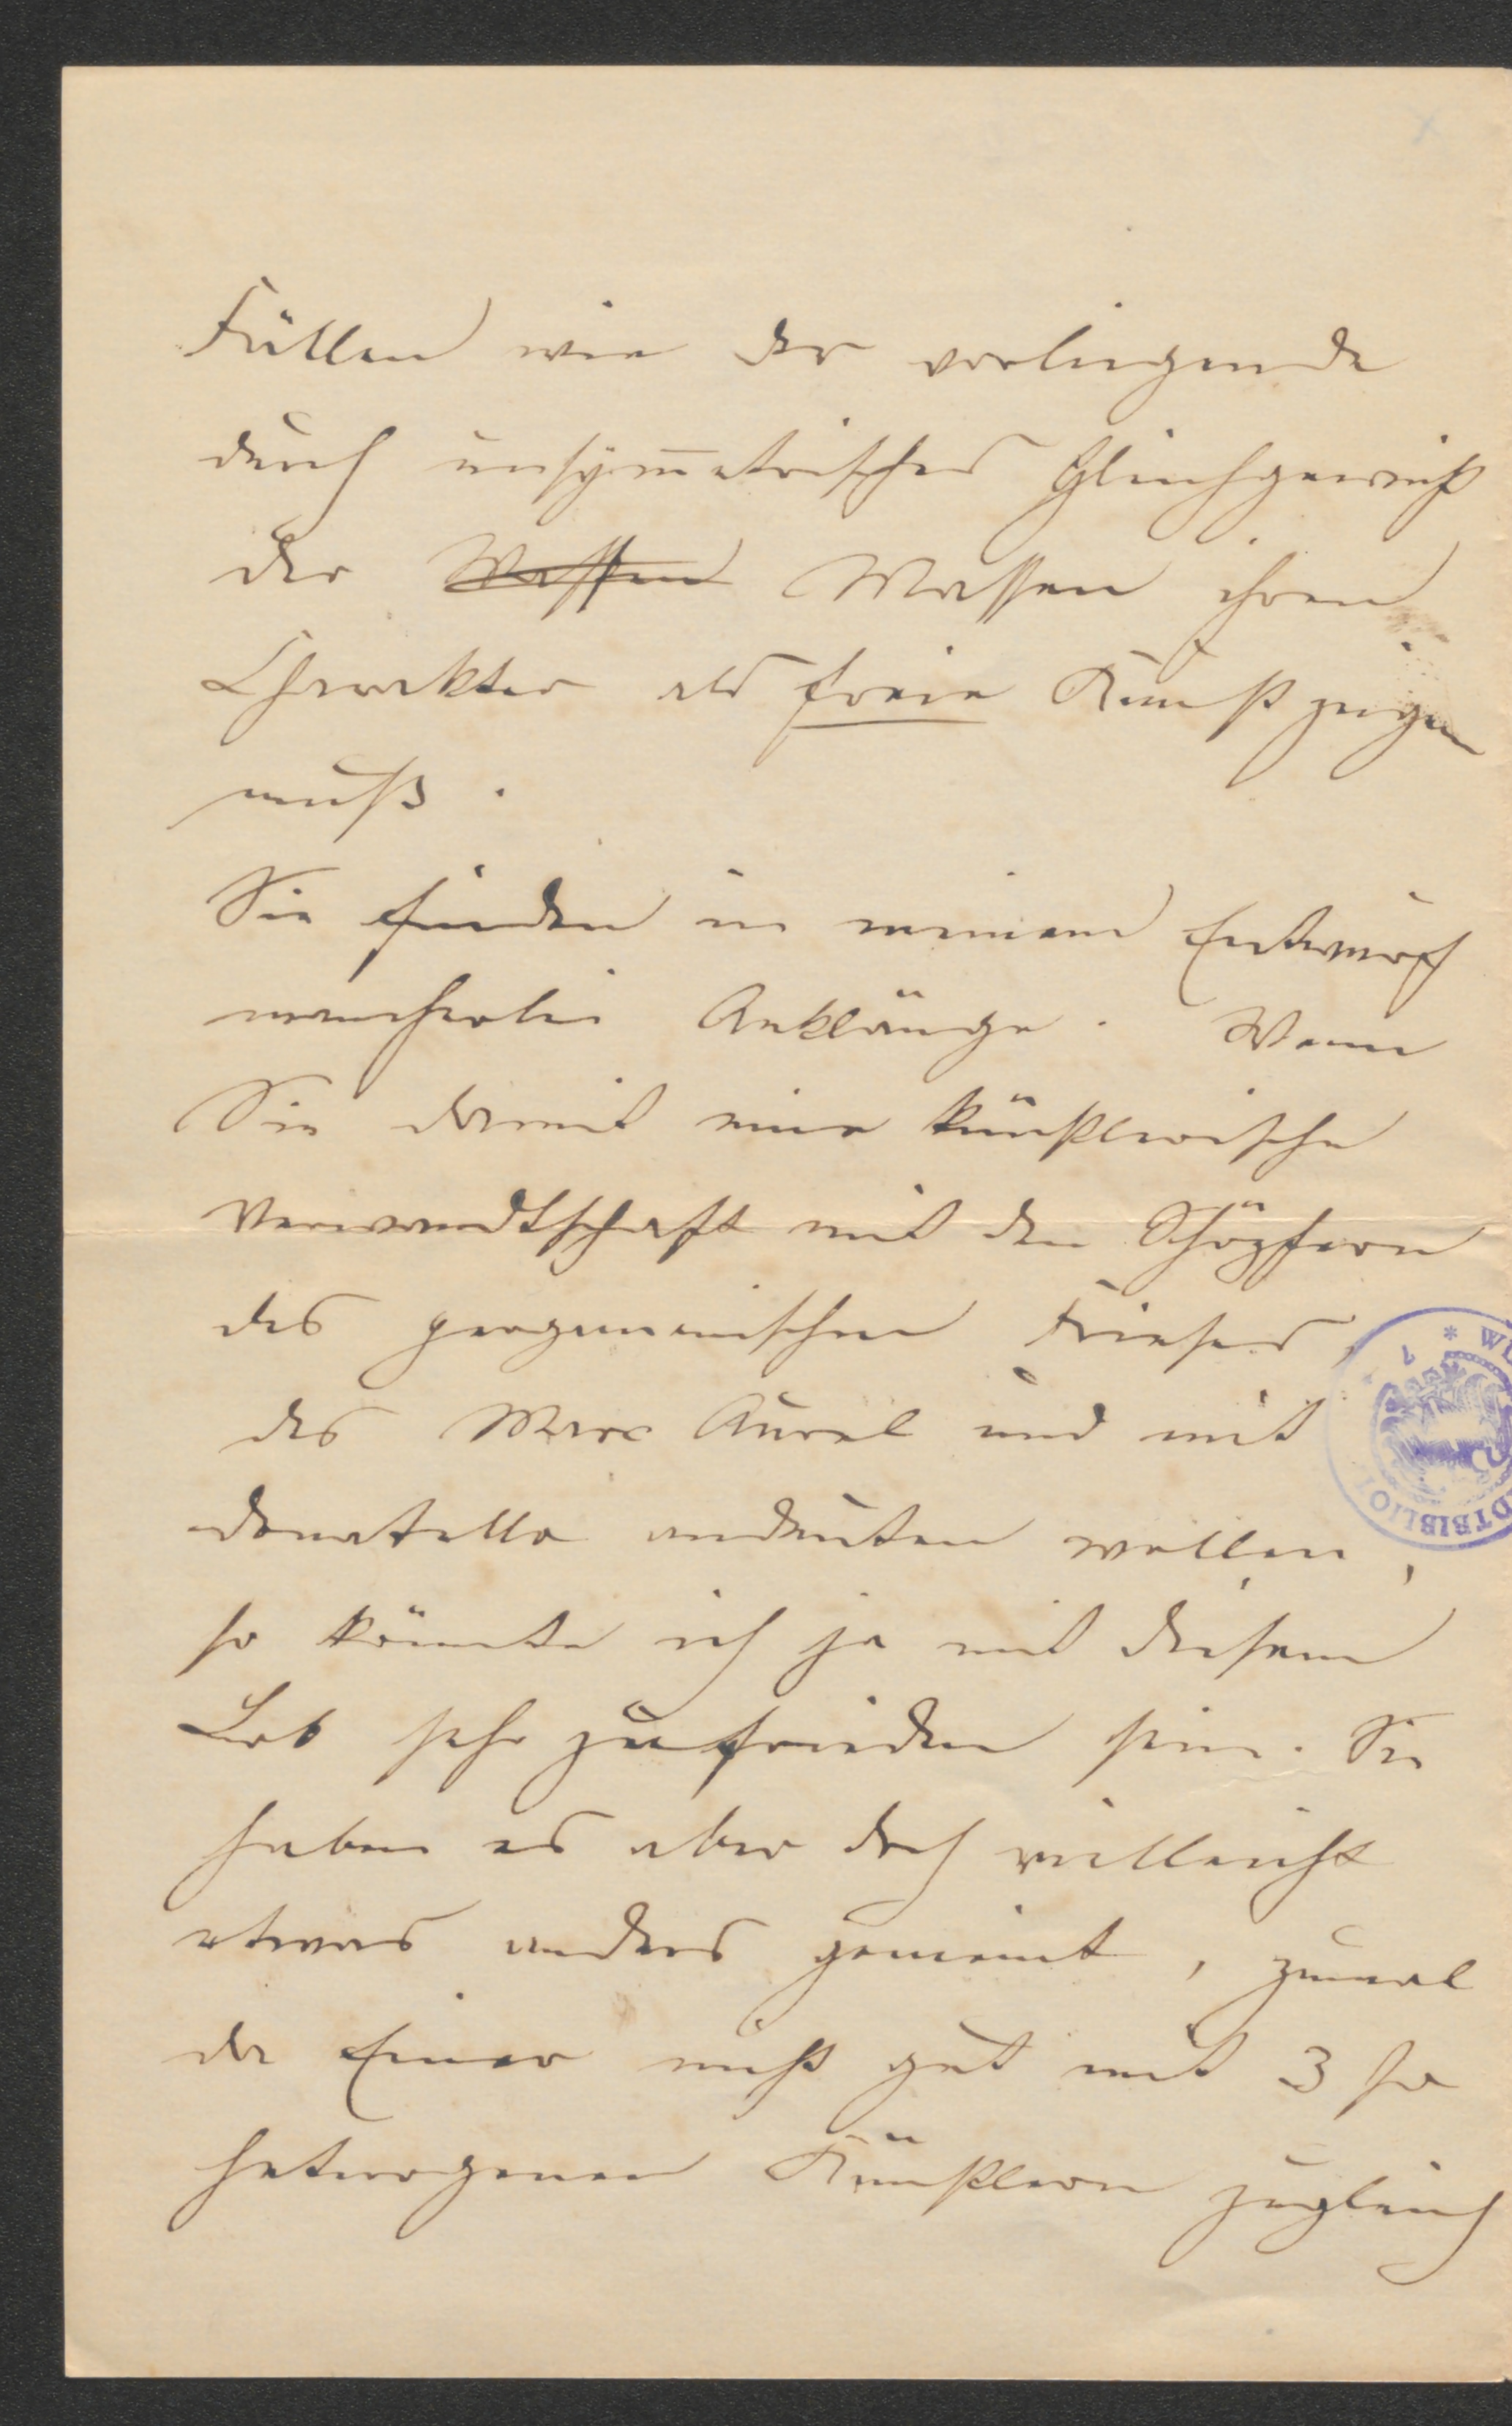 Fällen wie der vorliegende
durch unsymmetrisches Gleichgewicht
der Massen Massen ihren
Charakter als freie Kunst zeigen
muß.
Sie finden in meinem Entwurf
mancherlei Anklänge. Wenn
Sie damit eine künstlerische
Verwandtschaft mit den Schöpfern
des pergamenischen Frieses,
des Marc Aurel und mit
Donatello andeuten wollen,
so könnte ich ja mit diesem
Lob sehr zufrieden sein. Sie
haben es aber doch vielleicht
etwas anders gemeint, zumal
da Einer nicht gut mit 3 so
heterogenen Künstlern zugleich